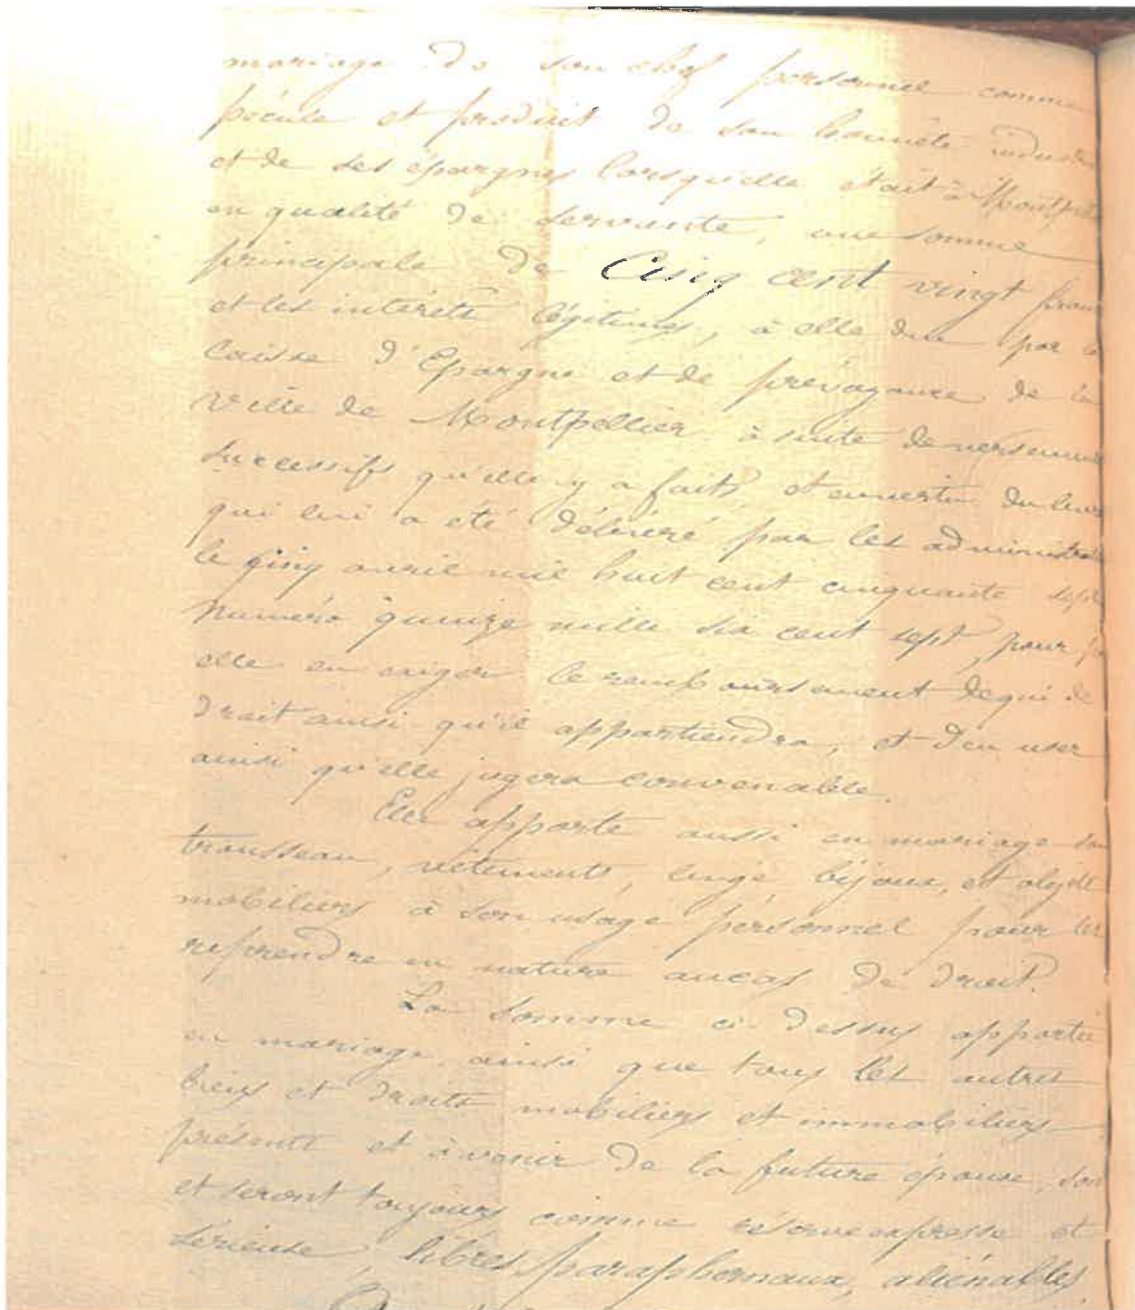 mariage de son chef personnel comme
pécule et produit de son honnête indust
et de ses épargnes lorsqu'elle était à Montpel
en qualité de servante, une somme
principale de Cinq cent vingt franc
et les intérêts légitimes, à elle due par la
Caisse d'Epargne et de prévoyance de la
Ville de Montpellier à suite de versemen
successifs qu'elle y a faits, et en vertu du livret
qui lui a été délivré par les administrat
le cinq avril mil huit cent cinquante sept
Numéro quinze mille six cent sept, pour p
elle en exiger le remboursement de qui de
droit ainsi qu'il appartiendra, et d'en user
ainsi qu'elle jugera convenable.
Elle apporte aussi en mariage son
trousseau, vêtements, linge bijoux, et objets
mobiliers à son usage personnel pour les
reprendre en nature au cas de droit.
La somme ci dessus apportée
en mariage, ainsi que tous les autres
biens et droits mobiliers et immobiliers
présents et à venir de la future épouse, son
et seront toujours comme réserve expresse et
sérieuse, libres, paraphernaux, aliénables